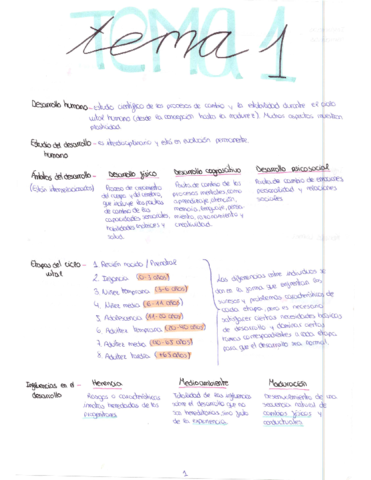 TEMA 1
tema 1
Desarrollo humano - estudio científico de los procesos de cambio y la estabilidad durante el ciclo
vital humano (desde la concepción hasta la madurez). Muchos aspectos muestran
plasticidad.
Estudio del desarrollo - es interdisciplinario y está en evolución permanente.
humano
Ámbitos del desarrollo - Desarrollo físico Desarrollo cognoscitivo Desarrollo psicosocial
(Están interrelacionados)
Proceso de crecimiento
del cuerpo y del cerebro,
que incluye los pautas
de cambio de las
capacidades sensoriales,
habilidades motrices y
salud.
Pautas de cambio de los
procesos mentales como
aprendizaje, atención,
memoria, lenguaje, pensa-
miento, razonamiento y
creatividad.
Pautas de cambio de emociones
personalidad y relaciones
sociales
Etapas del ciclo - 1. Recién nacido / Prenatal
vital
2. Infancia (0-3 años)
3. Niñez temprana (3-6 años)
4. Niñez media (6-11 años)
5. Adolescencia (11-20 años)
6. Adultez temprana (20-40 años)
7. Adultez media (40-65 años)
8. Adultez tardía (+65 años)
Las diferencias entre individuos se
dan en la forma que enfrentan los
sucesos y problemas característicos de
cada etapa, pero es necesario
satisfacer ciertas necesidades básicas
de desarrollo y dominar ciertas
tareas correspondientes a cada etapa
para que el desarrollo sea normal.
Influencias en el - Herencia Medioambiente Maduración
desarrollo
Rasgos o características
innatas heredadas de los
progenitores
Totalidad de las influencias
sobre el desarrollo que no
son hereditarias, sino fruto
de la experiencia
Desenvolvimiento de una
secuencia natural de
cambios físicos y
conductuales
1